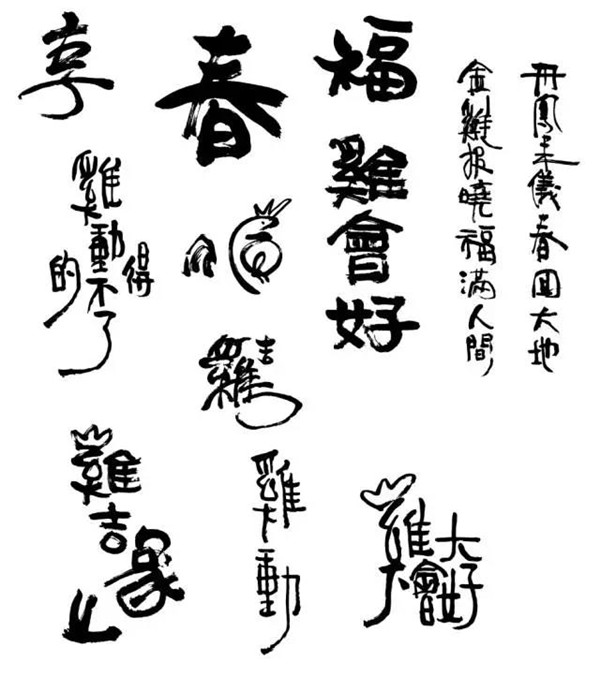 丹鳳来儀春回大地
金雞报曉福滿人間
福
雞會好
春
享
雞動的不得了
雞吉象
雞動
雞會大好